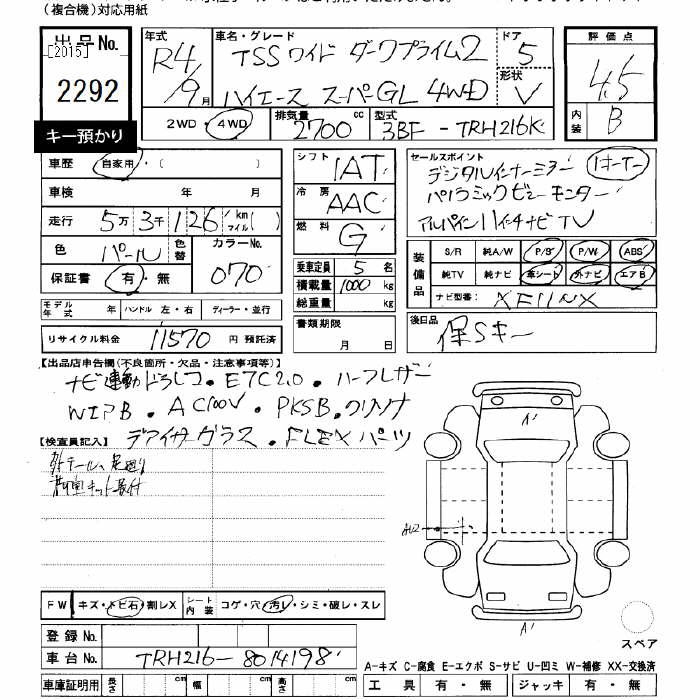 (複合機)対応用紙
出品No.
[2015]
2292
キー預かり
年式 R4/9月
車名・グレード TSS ワイド ダークプライム2
ハイエース スーパーGL 4WD
ドア 5
形状 V
2WD・4WD
排気量 2700 cc
型式 3BF-TRH216K
評価点 4.5
内装 B
車歴 自家用・( )
車検 年 月
走行 5万3千126 km マイル( )
色 パール 色替 カラーNo. 070
保証書 有・無
モデル年式 年 ハンドル 左・右 ディーラー・並行
リサイクル料金 11570 円 預託済
シフト IAT
冷房 AAC
燃料 G
乗車定員 5 名
積載量 1000 kg
総重量 kg
書類期限
月 日
セールスポイント 1オーナー
デジタルインナーミラー
パノラミックビューモニター
アルパイン11インチナビ TV
装備品 S/R 純A/W P/S P/W ABS
純TV 純ナビ 革シート 外ナビ エアB
ナビ型番: XF11NX
後日品 保Sキー
【出品店申告欄(不良箇所・欠品・注意事項等)】
ナビ連動ドラレコ・ETC2.0・ハーフレザー
WエアB・AC100V・PKSB・クリソナ
デアイサーガラス・FLEXパーツ
【検査員記入】
外テール、足廻り
キット装付
A'
AU2
A'
FW キズ・トビ石・割レX シート内装 コゲ・穴・汚レ・シミ・破レ・スレ
登録No.
車台No. TRH216-8014198
車庫証明用 長さ cm 幅 cm 高さ cm
スペア
A-キズ C-腐食 E-エクボ S-サビ U-凹ミ W-補修 XX-交換済
工具 有・無 ジャッキ 有・無